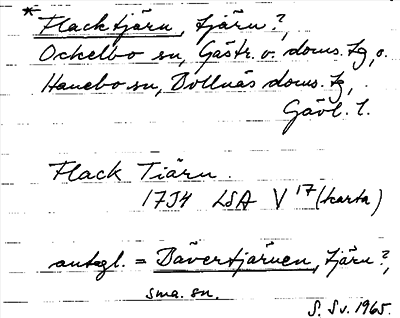 * Flacktjärn, tjärn?,
Ockelbo sn, Gästr. ö. doms. tg, o.
Hanebo sn, Bollnäs doms. tg,.
Gävl. l.
Flack Tiärn.
1734 LSA V 17 (karta)
antagl. = Bävertjärnen, tjärn?,
sma. sn.
S. Sv. 1965.